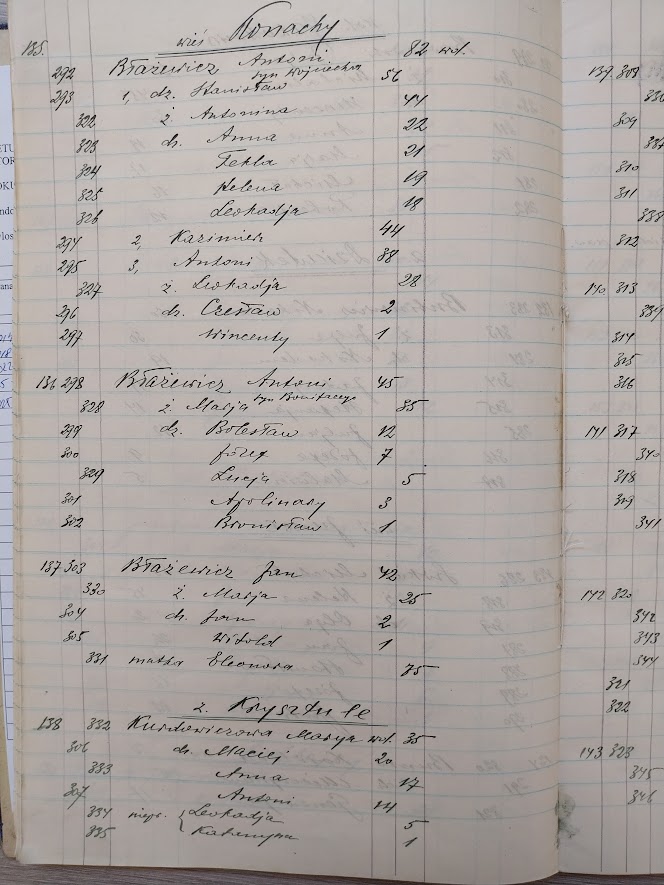 wieś Konachy
135.
292 Błażewicz Antoni 82 wd.
syn Wojciecha
293 1, dz. Stanisław 56
322 ż. Antonina 44
323 ch. Anna 22
324 Tekla 21
325 Helena 19
326 Leokadja 18
294 2, Kazimierz 44
295 3, Antoni 38
327 ż. Leokadja 28
296 dz. Czesław 2
297 Wincenty 1
136 298 Błażewicz Antoni 45
syn Bonifacego
328 ż. Marja 35
299 dz. Bolesław 12
300 Józef 7
329 Łucja 5
301 Apolinary 3
302 Bronisław 1
137 303 Błażewicz Jan 42
330 ż. Marja 25
304 ch. Jan 2
305 Witold 1
331 matka Eleonora 75
z. Krysztule
138 332 Marya wd. 35
306 ch. Maciej 20
333 Anna 17
307 Antoni 14
334 niepr. Leokadja 5
335 Katarzyna 1
139 308
309
310
311
338
312
140 313
339
314
315
316
141 317
340
318
319
341
142 320
342
343
344
321
322
143 323
345
346